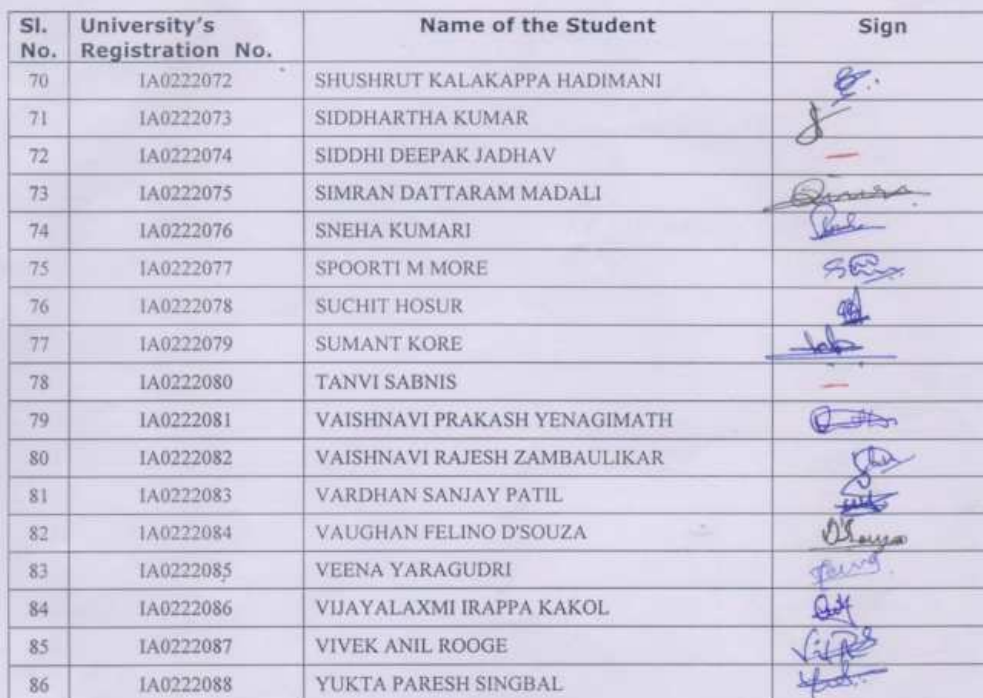 Sl. No. University's Registration No. Name of the Student Sign
70 IA0222072 SHUSHRUT KALAKAPPA HADIMANI
71 IA0222073 SIDDHARTHA KUMAR
72 IA0222074 SIDDHI DEEPAK JADHAV —
73 IA0222075 SIMRAN DATTARAM MADALI
74 IA0222076 SNEHA KUMARI
75 IA0222077 SPOORTI M MORE
76 IA0222078 SUCHIT HOSUR
77 IA0222079 SUMANT KORE
78 IA0222080 TANVI SABNIS —
79 IA0222081 VAISHNAVI PRAKASH YENAGIMATH
80 IA0222082 VAISHNAVI RAJESH ZAMBAULIKAR
81 IA0222083 VARDHAN SANJAY PATIL
82 IA0222084 VAUGHAN FELINO D'SOUZA D'Souza
83 IA0222085 VEENA YARAGUDRI
84 IA0222086 VIJAYALAXMI IRAPPA KAKOL
85 IA0222087 VIVEK ANIL ROOGE
86 IA0222088 YUKTA PARESH SINGBAL